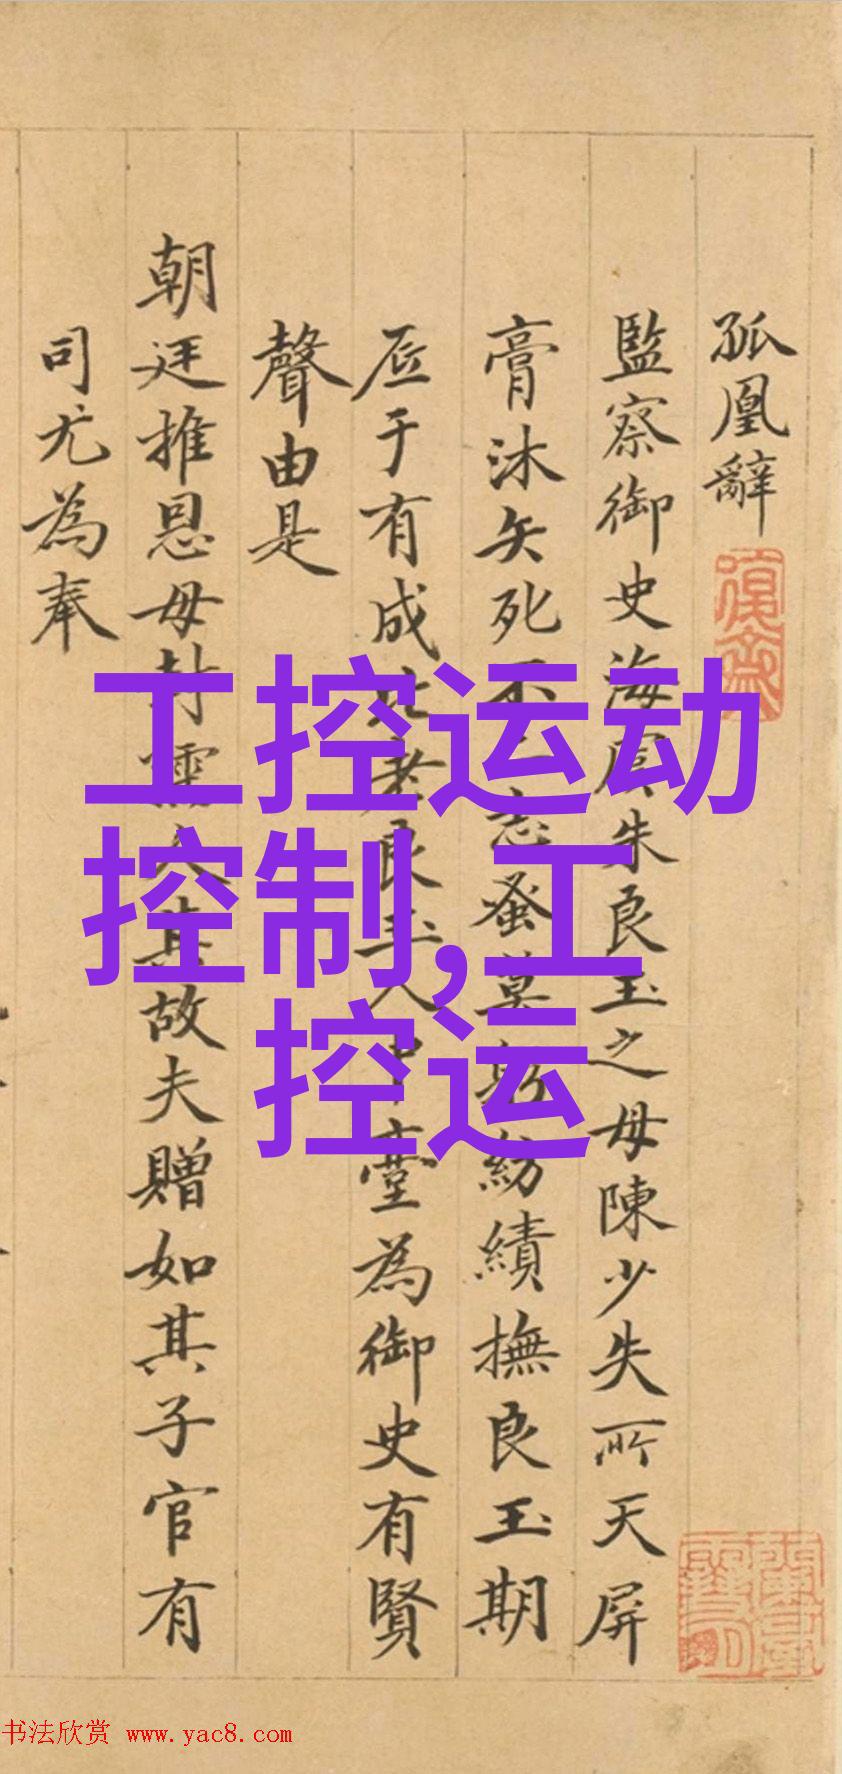 孤凰辭
監察御史海虞朱良玉之母陳少失所天屏
膏沐矢死不二志蚤莫躬紡績撫良玉期
底于有成比老良玉入中臺為御史有賢
聲由是
朝廷推恩母封孺人其故夫贈如其子官有
司尤為奉
工控运动
控制,工
控运
书法欣赏 www.yac8.com